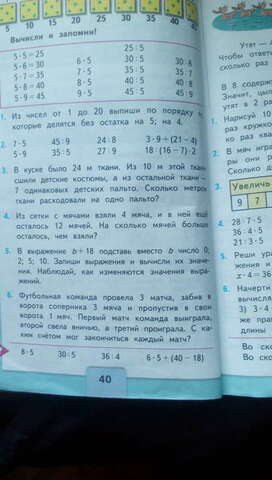 5 10 15 20 25 30 35 40 45
Вычисли и запомни!
5·5=25 25:5
5·6=30 6·5 30:5 30:6
5·7=35 7·5 35:5 35:7
5·8=40 8·5 40:5 40:8
5·9=45 9·5 45:5 45:9
1. Из чисел от 1 до 20 выпиши по порядку те,
которые делятся без остатка на 5; на 4.
2. 7·5 45:9 24:8 3·9+(21−4)
5·9 35:5 27:9 18:(16−7)·2
3. В куске было 24 м ткани. Из 10 м этой ткани
сшили детские костюмы, а из остальной ткани —
7 одинаковых детских пальто. Сколько метров
ткани расходовали на одно пальто?
4. Из сетки с мячами взяли 4 мяча, и в ней ещё
осталось 12 мячей. На сколько мячей больше
осталось, чем взяли?
5. В выражение b+18 подставь вместо b число 0;
2; 5; 10. Запиши выражения и вычисли их значе-
ния. Наблюдай, как изменяются значения выра-
жений.
6. Футбольная команда провела 3 матча, забив в
ворота соперника 3 мяча и пропустив в свои
ворота 1 мяч. Первый матч команда выиграла,
второй свела вничью, а третий проиграла. С ка-
ким счётом мог закончиться каждый матч?
8·5 30:5 36:4 6·5+(40−18)
40
Утят —
Чтобы отве
сколько раз
В 8 содерж
Значит, цы
утят в 2 ра
1. Нарисуй 10
раз кружко
ко раз ква
2. В мяч игра
ры они р
Сколько де
3. Увеличь
9 7
4. 28:7·5
36:4·5
21:3·5
5. Реши ура
жения и
x·4=36
6. Начерти
вычисли
3) 3·4
же пря
длины
Во ско
Во ско